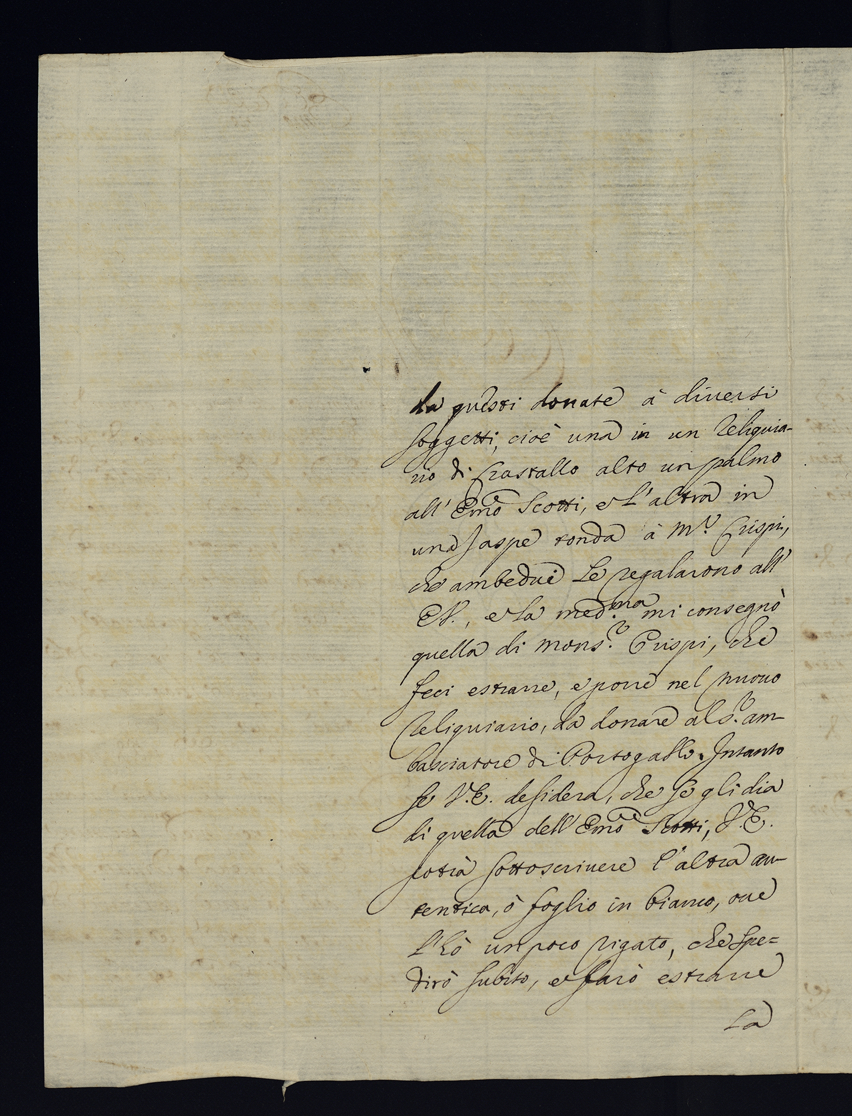 da questi donate à diversi
soggetti, cioè una in un Reliquia-
rio di Crastallo alto un palmo
all' Emo Scotti, e l'altra in
una Jaspe tonda à Mr. Crispi,
che ambedue le regalarono all'
EV., e la medma mi consegnò
quella di Monsr. Crispi, che
feci estrarre, e porre nel nuovo
Reliquiario, da donare al Sr. am-
basciatore di Portogallo. Intanto
se V.E. desidera, che se gli dia
di quella dell' Emo Scotti, V.E.
potrà sottoscrivere l'altra au-
tentica, ò foglio in bianco, ove
l'hò un poco rigato, che spe=
dirò subito, e farò estrarre
la